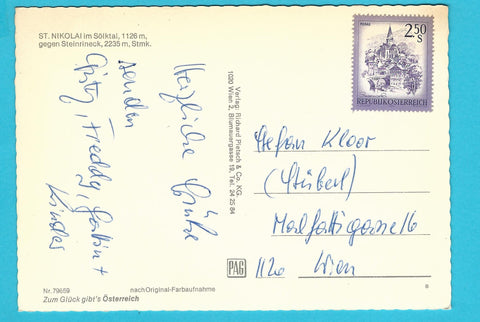 ST. NIKOLAI im Sölktal, 1126 m,
gegen Steinrineck, 2235 m, Stmk.
Herzliche Grüße
senden
Gusty, Freddy, Gattin +
Kinder
Verlag: Richard Pietsch & Co. KG.
1020 Wien 2, Blumauergasse 19, Tel. 24 25 84
PAG
MURAU
2.50
S
REPUBLIK ÖSTERREICH
Stefan Kloor
(Stüberl)
Malfattigasse 16
1120 Wien
Nr. 79659
nach Original-Farbaufnahme
Zum Glück gibt's Österreich